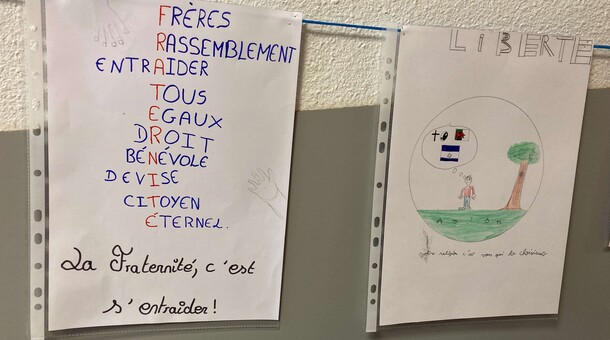 FRÈRES
RASSEMBLEMENT
ENTRAIDER
TOUS
EGAUX
DROIT
BÉNÉVOLE
DEVISE
CITOYEN
ÉTERNEL.
La Fraternité, c'est
s'entraider!
LIBERTE
votre religion c'est vous qui la choisissez